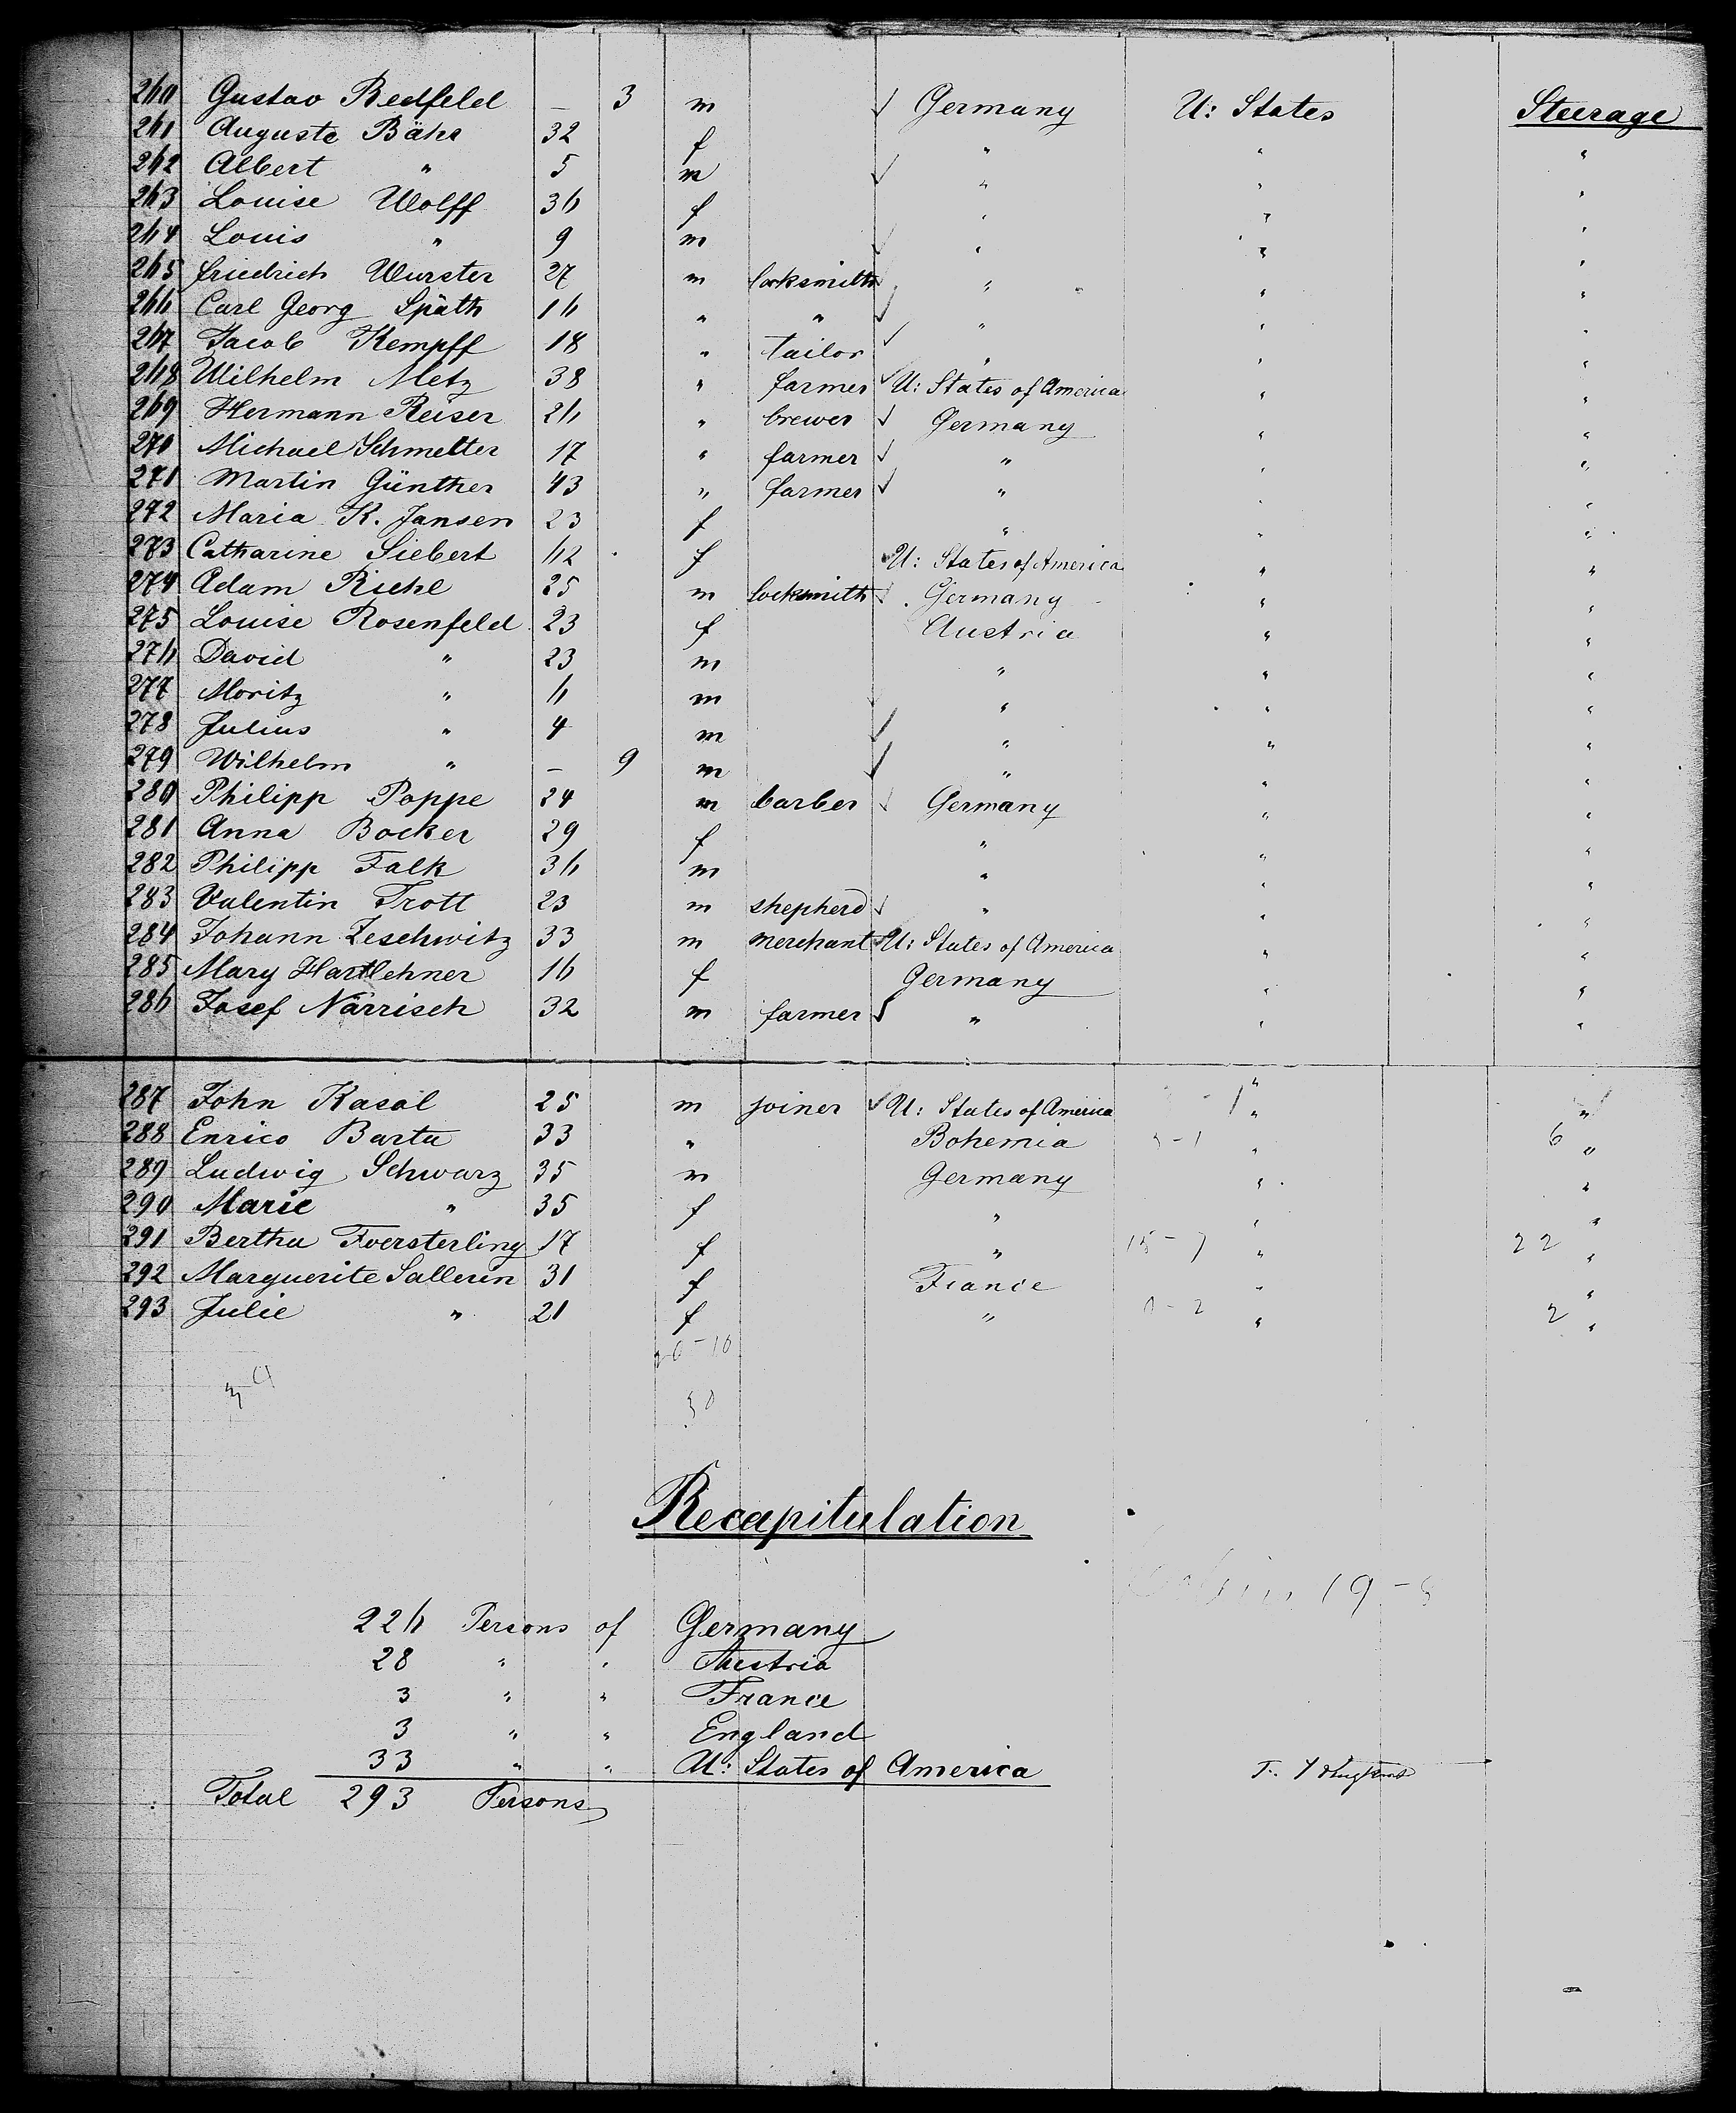 260 Gustav Bedfeld — 3 m ✓ Germany U: States Steerage
261 Auguste Bähr 32 f " " "
262 Albert " 5 m ✓ " " "
263 Louise Wolff 36 f " " "
264 Louis " 9 m ✓ " " "
265 Friedrich Wurster 27 m locksmith " " "
266 Carl Georg Späth 16 " " ✓ " " "
267 Jacob Kempff 18 " tailor ✓ " " "
268 Wilhelm Metz 38 " farmer ✓ U: States of America " "
269 Hermann Reiser 26 " brewer ✓ Germany " "
270 Michael Schmelter 17 " farmer ✓ " " "
271 Martin Günther 43 " farmer ✓ " " "
272 Maria K. Jansen 23 f " " "
273 Catharine Siebert 62 f U: States of America " "
274 Adam Riehl 25 m locksmith ✓ Germany " "
275 Louise Rosenfeld 23 f Austria " "
276 David " 23 m " " "
277 Moritz " 6 m " " "
278 Julius " 4 m ✓ " " "
279 Wilhelm " — 9 m ✓ " " "
280 Philipp Poppe 24 m barber ✓ Germany " "
281 Anna Bocker 29 f " " "
282 Philipp Falk 36 m " " "
283 Valentin Trott 23 m shepherd ✓ " " "
284 Johann Zeschwitz 33 m merchant ✓ U: States of America " "
285 Mary Hartlehner 16 f Germany " "
286 Josef Närrisch 32 m farmer ✓ " " "
287 John Kasal 25 m joiner ✓ U: States of America " "
288 Enrico Barta 33 " Bohemia " 6 "
289 Ludwig Schwarz 35 m Germany " "
290 Marie " 35 f " " "
291 Bertha Foersterling 17 f " 15-7 " 22 "
292 Marguerite Sallerin 31 f France " "
293 Julie " 21 f " 0-2 " 2 "
20-10
30
Recapitulation
19-
226 Persons of Germany
28 " " Austria
3 " " France
3 " " England
33 " " U: States of America
Total 293 Persons